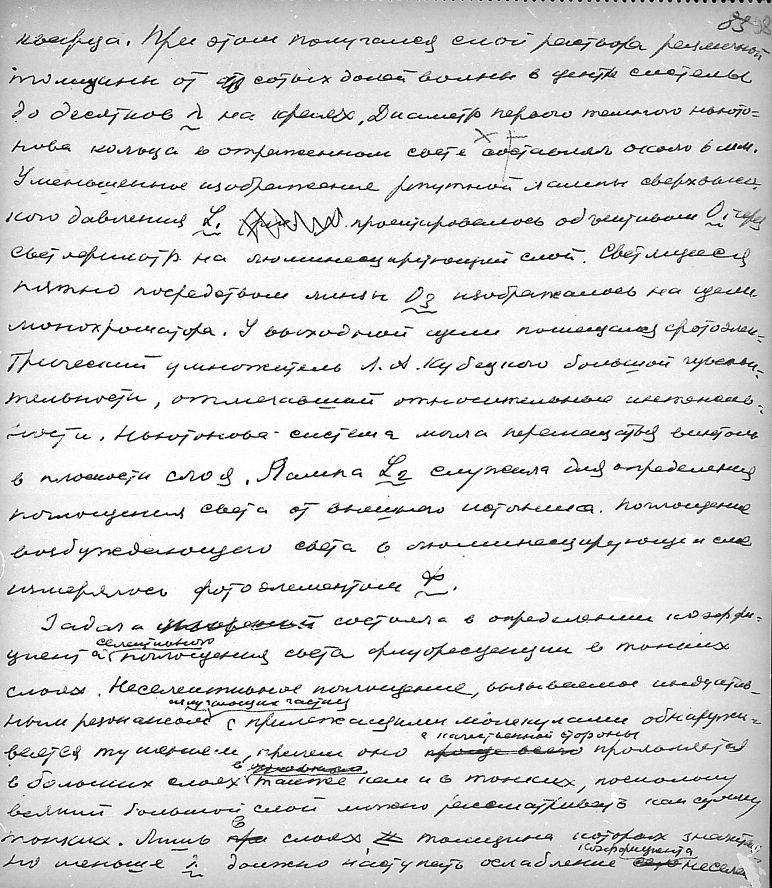 83
кварца. При этом получался слой раствора различной
толщины от сотых долей волны в центре системы
до десятков λ на краях. Диаметр первого темного ньюто=
нова кольца в отраженном свете составлял около 6 мм.
Уменьшенное изображение ртутной лампы сверхвысо-
кого давления L₁ проектировалось объективом O₁ через
светофильтр на люминесцирующий слой. Светящееся
пятно посредством линзы O₃ изображалось на щели
монохроматора. У выходной щели помещался фотоэлек-
трический умножитель Л.А. Кубецкого большой чувстви-
тельности, отмечавший относительные интенсив-
ности. Ньютонова система могла перемещаться винтом
в плоскости слоя. Лампа L₂ служила для определения
поглощения света от внешнего источника. Поглощение
возбуждающего света в люминесцирующем слое
измерялось фотоэлементом Ф.
Задача состояла в определении коэффи-
циента селективного поглощения света флуоресценции в тонких
слоях. Неселективное поглощение, вызываемое индуктив-
ным резонансом излучающих частиц с прилежащими молекулами обнаружи-
вается тушением, причем оно с качественной стороны проявляется
в больших слоях так же как и в тонких, поскольку
всякий большой слой можно рассматривать как сумму
тонких. Лишь в слоях, толщина которых значитель-
но меньше λ должно наступать ослабление коэффициента неселек